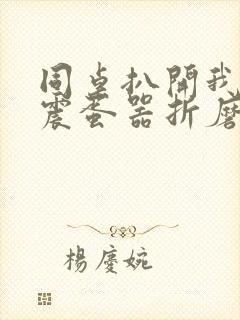 同桌扒開我
震蛋器折磨
楊慶婉